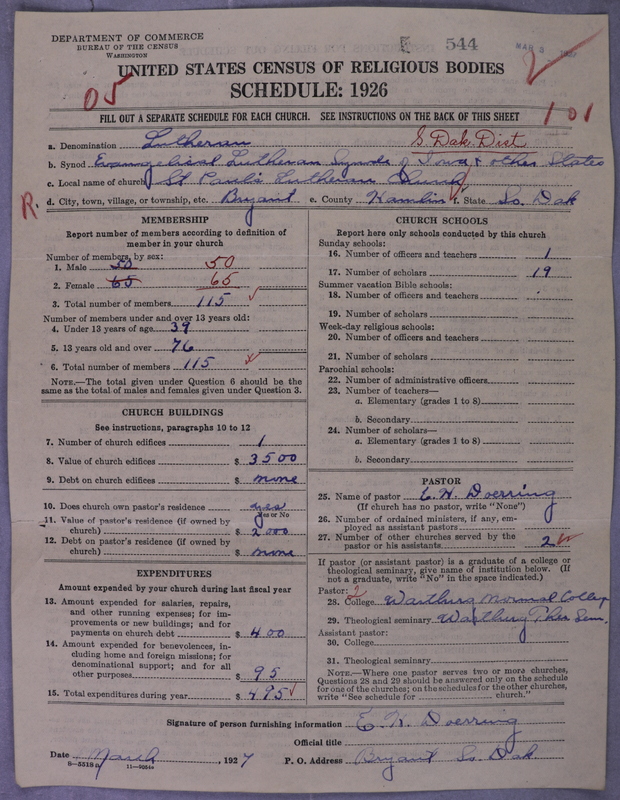 DEPARTMENT OF COMMERCE
BUREAU OF THE CENSUS
WASHINGTON
544
MAR 3
UNITED STATES CENSUS OF RELIGIOUS BODIES
SCHEDULE: 1926
05
FILL OUT A SEPARATE SCHEDULE FOR EACH CHURCH. SEE INSTRUCTIONS ON THE BACK OF THIS SHEET
101
a. Denomination Lutheran S. Dak. Dist.
b. Synod Evangelical Lutheran Synod of Iowa & other States
c. Local name of church St Paul's Lutheran Church
R. d. City, town, village, or township, etc. Bryant e. County Hamlin f. State So. Dak
MEMBERSHIP
Report number of members according to definition of
member in your church
Number of members by sex:
1. Male 50 50
2. Female 65 65
3. Total number of members 115
Number of members under and over 13 years old:
4. Under 13 years of age 39
5. 13 years old and over 76
6. Total number of members 115
NOTE.—The total given under Question 6 should be the
same as the total of males and females given under Question 3.
CHURCH BUILDINGS
See instructions, paragraphs 10 to 12
7. Number of church edifices 1
8. Value of church edifices $ 3500
9. Debt on church edifices $ none
10. Does church own pastor's residence yes
Yes or No
11. Value of pastor's residence (if owned by
church) $ 2000
12. Debt on pastor's residence (if owned by
church) $ none
EXPENDITURES
Amount expended by your church during last fiscal year
13. Amount expended for salaries, repairs,
and other running expenses; for im-
provements or new buildings; and for
payments on church debt $ 400
14. Amount expended for benevolences, in-
cluding home and foreign missions; for
denominational support; and for all
other purposes $ 95
15. Total expenditures during year $ 495
CHURCH SCHOOLS
Report here only schools conducted by this church
Sunday schools:
16. Number of officers and teachers 1
17. Number of scholars 19
Summer vacation Bible schools:
18. Number of officers and teachers
19. Number of scholars
Week-day religious schools:
20. Number of officers and teachers
21. Number of scholars
Parochial schools:
22. Number of administrative officers
23. Number of teachers—
a. Elementary (grades 1 to 8)
b. Secondary
24. Number of scholars—
a. Elementary (grades 1 to 8)
b. Secondary
PASTOR
25. Name of pastor E. N. Doerring
(If church has no pastor, write "None")
26. Number of ordained ministers, if any, em-
ployed as assistant pastors
27. Number of other churches served by the
pastor or his assistants 2
If pastor (or assistant pastor) is a graduate of a college or
theological seminary, give name of institution below. (If
not a graduate, write "No" in the space indicated.)
Pastor: 2
28. College Wartburg Normal College
29. Theological seminary Wartburg Theo. Sem.
Assistant pastor:
30. College
31. Theological seminary
NOTE.—Where one pastor serves two or more churches,
Questions 28 and 29 should be answered only on the schedule
for one of the churches; on the schedules for the other churches,
write "See schedule for church."
Signature of person furnishing information E. N. Doerring
Official title
Date March, 1927 P. O. Address Bryant So. Dak.
8—5518a 11—9054